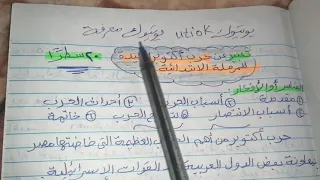 يوتيوب utiok يوتيوك معرفة
تعبير عن حرب أكتوبر المجيدة
للمرحلة الابتدائية
٢٠ سطرًا
العناصر أو الأفكار
① مقدمة ② أسباب الحرب ③ أحداث الحرب
④ أسباب الانتصار ⑤ نتائج الحرب ⑥ خاتمة
حرب أكتوبر من أهم الحروب العظيمة التي خاضتها مصر
بمعاونة بعض الدول العربية ضد القوات الإسرائيلية